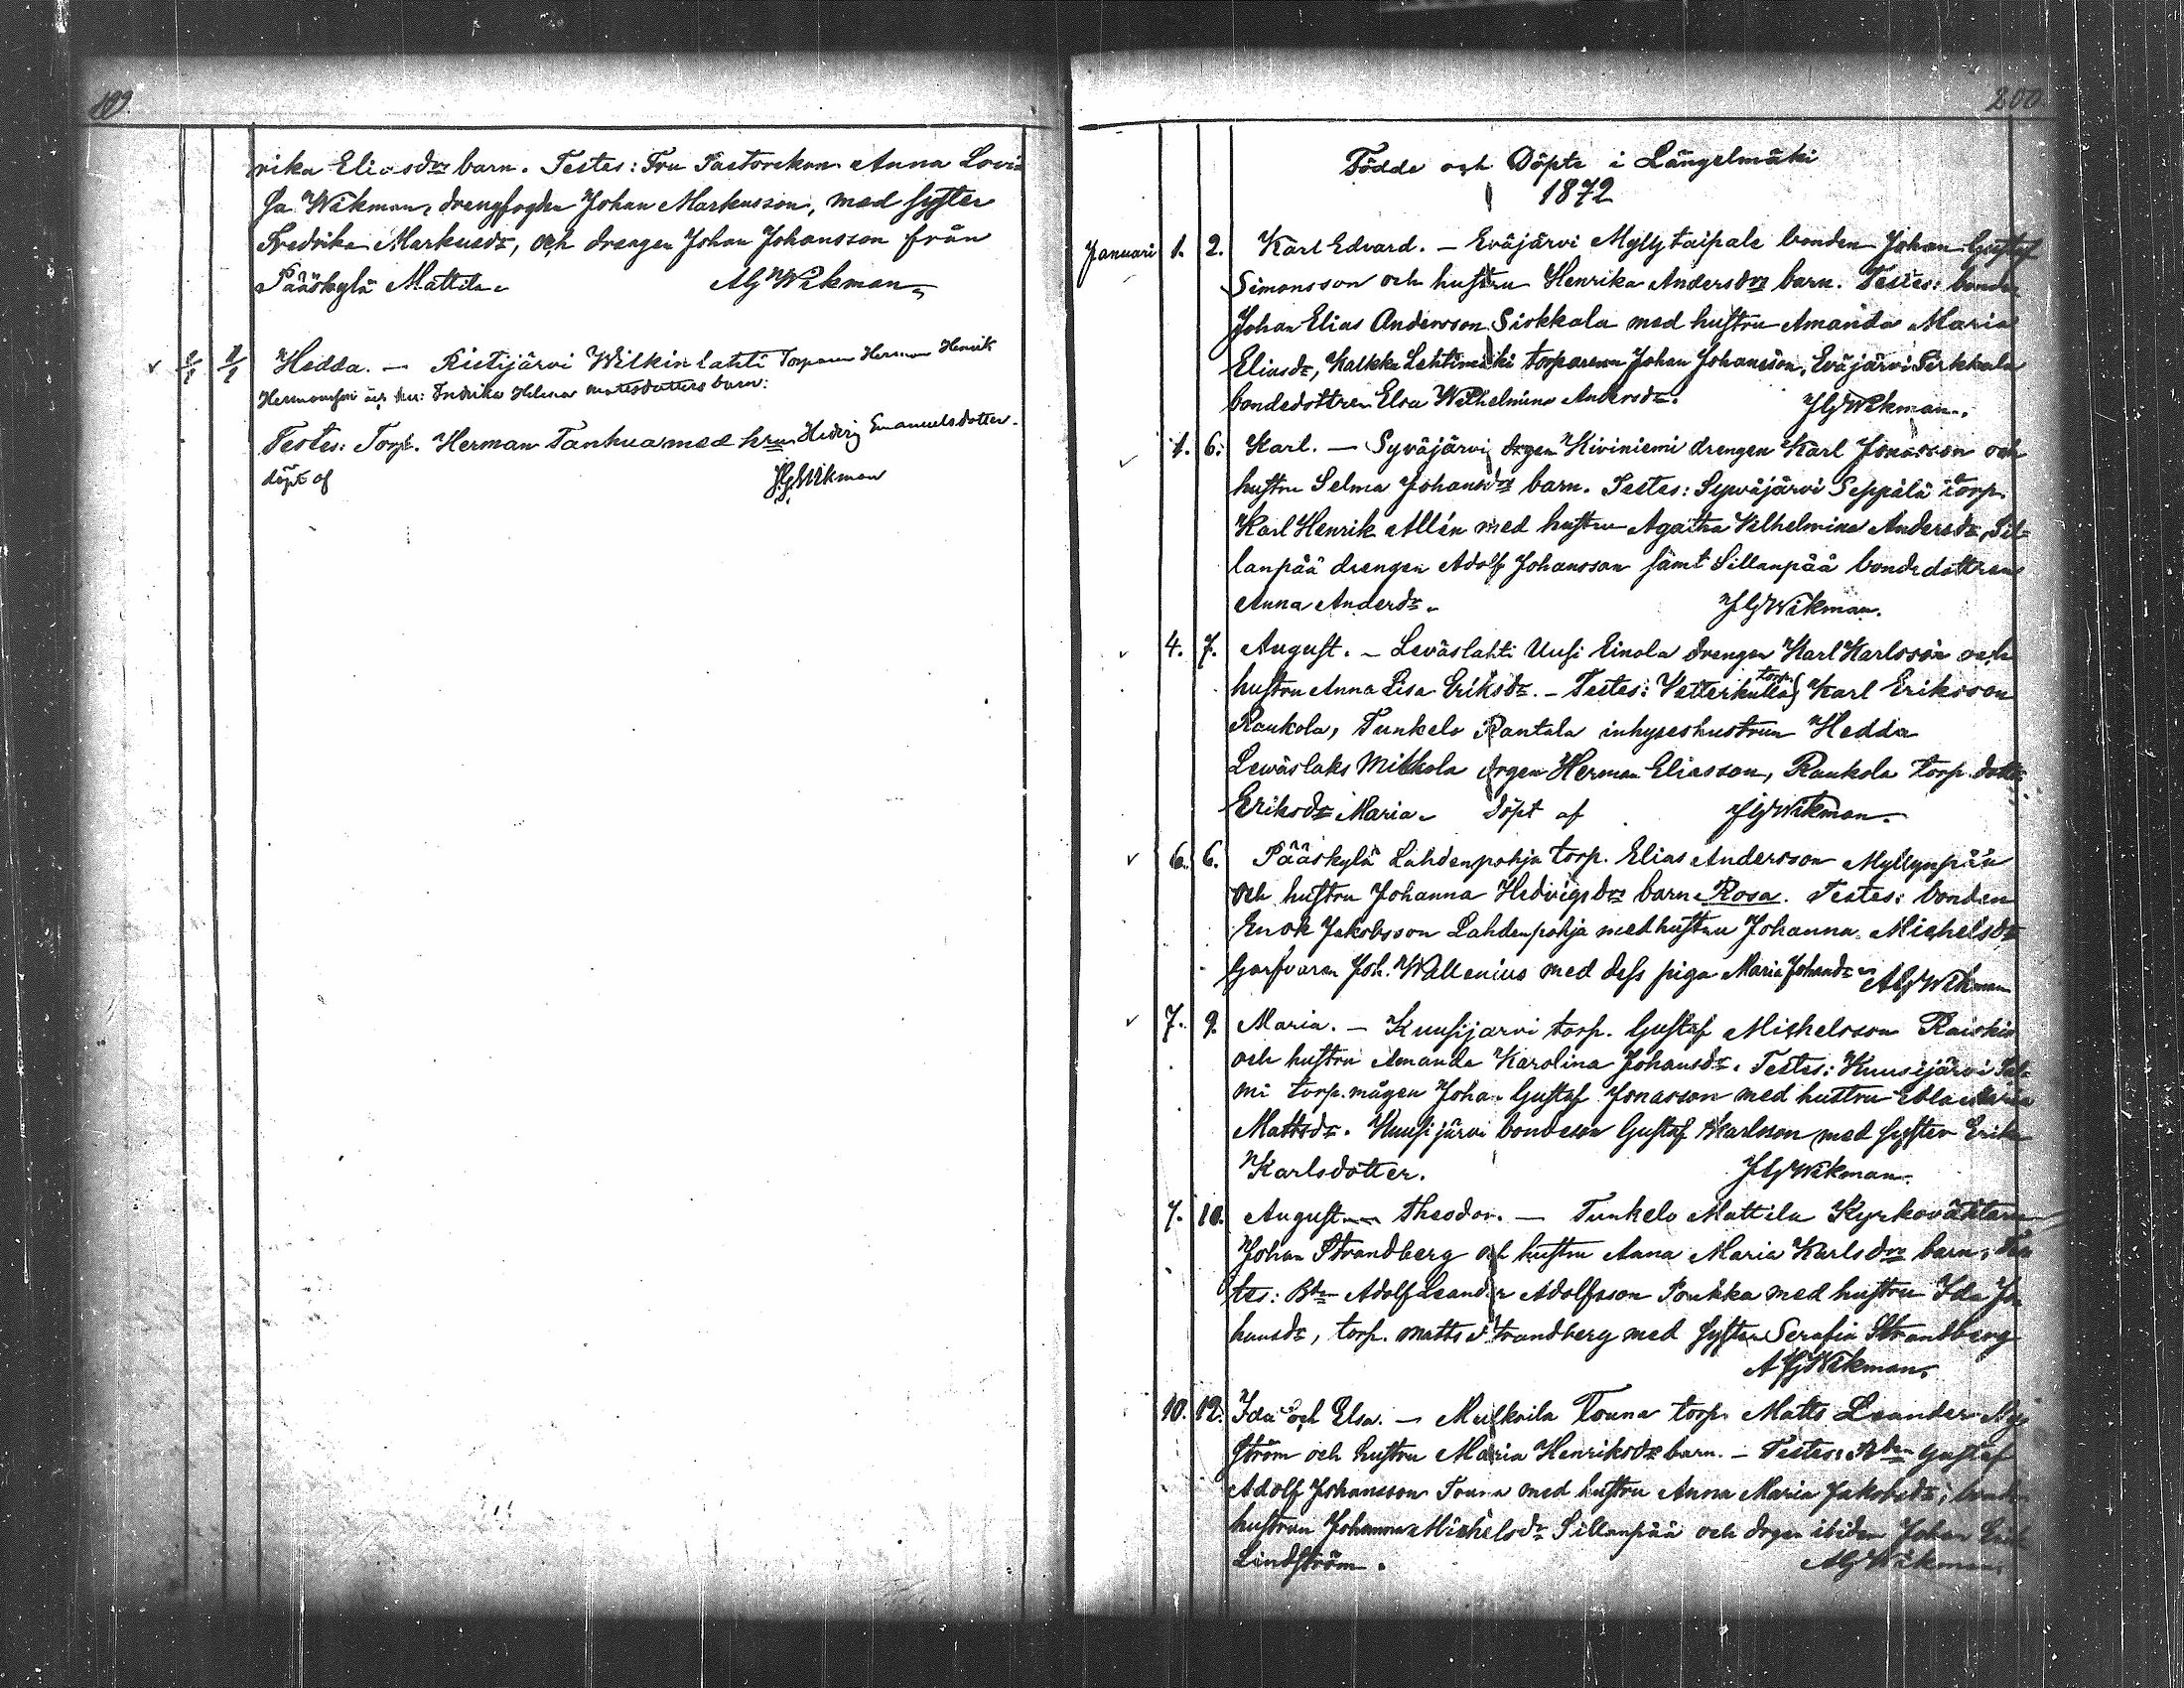 199.
rika Eliasdrs barn. Testes: Fru Pastorskan Anna Lovi-
sa Wikman, drengfogden Johan Markusson, med syster
Fredrika Markusdr, och drengen Johan Johansson från
Pääskylä Mattila. AGWikman
Hedda. — Ristijärvi Wilkinlahti Torparen Herman Henrik
Hermansson och hu: Fredrika Helena Mattsdotters barn:
Testes: Torp. Herman Tanhua med hru Hedvig Emanuelsdotter.
döpt af JGWikman
200.
Födde och Döpte i Längelmäki
1872
Januari 1. 2. Karl Edvard. — Eväjärvi Myllytaipale bonden Johan Gustaf
Simonsson och hustru Henrika Andersdrs barn. Testes: bonden
Johan Elias Andersson Sirkkala med hustru Amanda Maria
Eliasdr, Kalkku Lehtimäki torparen Johan Johansson, Eväjärvi Sirkkala
bondedottren Elsa Wilhelmina Andersdr. JGWikman.
1. 6. Karl. — Syväjärvi drgen Kiviniemi drengen Karl Jonasson och
hustru Selma Johansdrs barn. Testes: Syväjärvi Seppälä torp.
Karl Henrik Allén med hustru Agatha Vilhelmina Andersdr, Sil-
lanpää drengen Adolf Johansson samt Sillanpää bondedottren
Anna Andersdr. JGWikman.
4. 7. August. — Leväslahti Uusi Einola drengen Karl Karlsson och
hustru Anna Lisa Eriksdr. — Testes: Vetterkulla torp. Karl Eriksson
Raukola, Tunkelo Rantala inhyseshustrun Hedda
Leväslaks Mikkola drgen Herman Eliasson, Raukola torp. dottr
Eriksdr Maria. döpt af JGWikman.
6. 6. Pääskylä Lahdenpohja torp. Elias Andersson Myllynpää
och hustru Johanna Hedvigsdrs barn Rosa. Testes: bonden
Enok Jakobsson Lahdenpohja med hustru Johanna Michelsdr
Garfvaren Joh. Wallenius med dess piga Maria Johansdr AGWikman
7. 9. Maria. — Kuusijarvi torp. Gustaf Michelsson Raiskin
och hustru Amanda Karolina Johansdr. Testes: Kuusijärvi Sal-
mi torp. mågen Johan Gustaf Jonasson med hustru Ebla Maria
Mattsdr. Kuusijärvi bondeson Gustaf Karlsson med syster Erika
Karlsdotter. JGWikman.
7. 10. August Theodor. — Tunkelo Mattila Kyrkoväktaren
Johan Strandberg och hustru Anna Maria Karlsdrs barn. Tes-
tes: Bdn Adolf Leander Adolfsson Poukka med hustru Ida Jo-
hansdr, torp. Matts Strandberg med syster Serafia Strandberg
AGWikman.
10. 12. Ida och Elsa. — Mulkoila Touna torp. Matts Leander Ny-
ström och hustru Maria Henriksdrs barn. — Testes: Bden Gustaf
Adolf Johansson Touna med hustru Anna Maria Jakobsdr, bonde
hustrun Johanna Michelsdr Sillanpää och drgen ibidem Johan
Lindström. AGWikman.